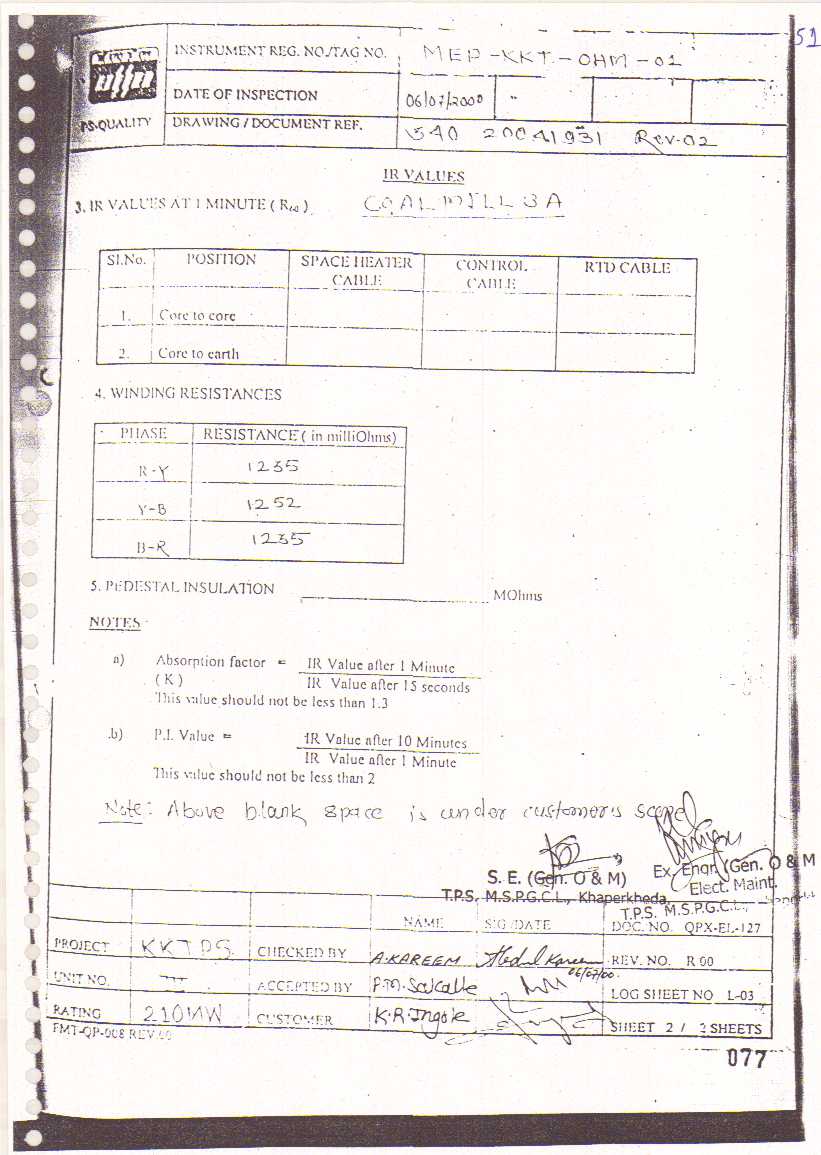 51
INSTRUMENT REG. NO./TAG NO. MEP-KKT-OHM-01
DATE OF INSPECTION 06/07/2000 "
PS-QUALITY DRAWING / DOCUMENT REF. Rev-02
IR VALUES
3. IR VALUES AT 1 MINUTE ( R60 ) COAL MILL 3A
Sl.No. POSITION SPACE HEATER CABLE CONTROL CABLE RTD CABLE
1. Core to core
2. Core to earth
4. WINDING RESISTANCES
PHASE RESISTANCE ( in milliOhms)
R-Y 1235
Y-B 1252
B-R 1235
5. PEDESTAL INSULATION ____________ MOhms
NOTES
a) Absorption factor = IR Value after 1 Minute
( K ) IR Value after 15 seconds
This value should not be less than 1.3
b) P.I. Value = IR Value after 10 Minutes
IR Value after 1 Minute
This value should not be less than 2
Note: Above blank space is under customer's scope
S. E. (Gen. O & M) Ex. Engr. (Gen. O & M
T.P.S. M.S.P.G.C.L., Khaperkheda. Elect. Maint.
T.P.S. M.S.P.G.C.L.,
NAME SIG/DATE DOC. NO. QPX-EL-127
PROJECT KKTPS CHECKED BY A.KAREEM Abdul Kareem REV. NO. R 00
06/07/00
UNIT NO. III ACCEPTED BY P.M. LOG SHEET NO L-03
RATING 210MW CUSTOMER K.R.Ingole SHEET 2 / 3 SHEETS
FMT-QP-008 REV.00
077